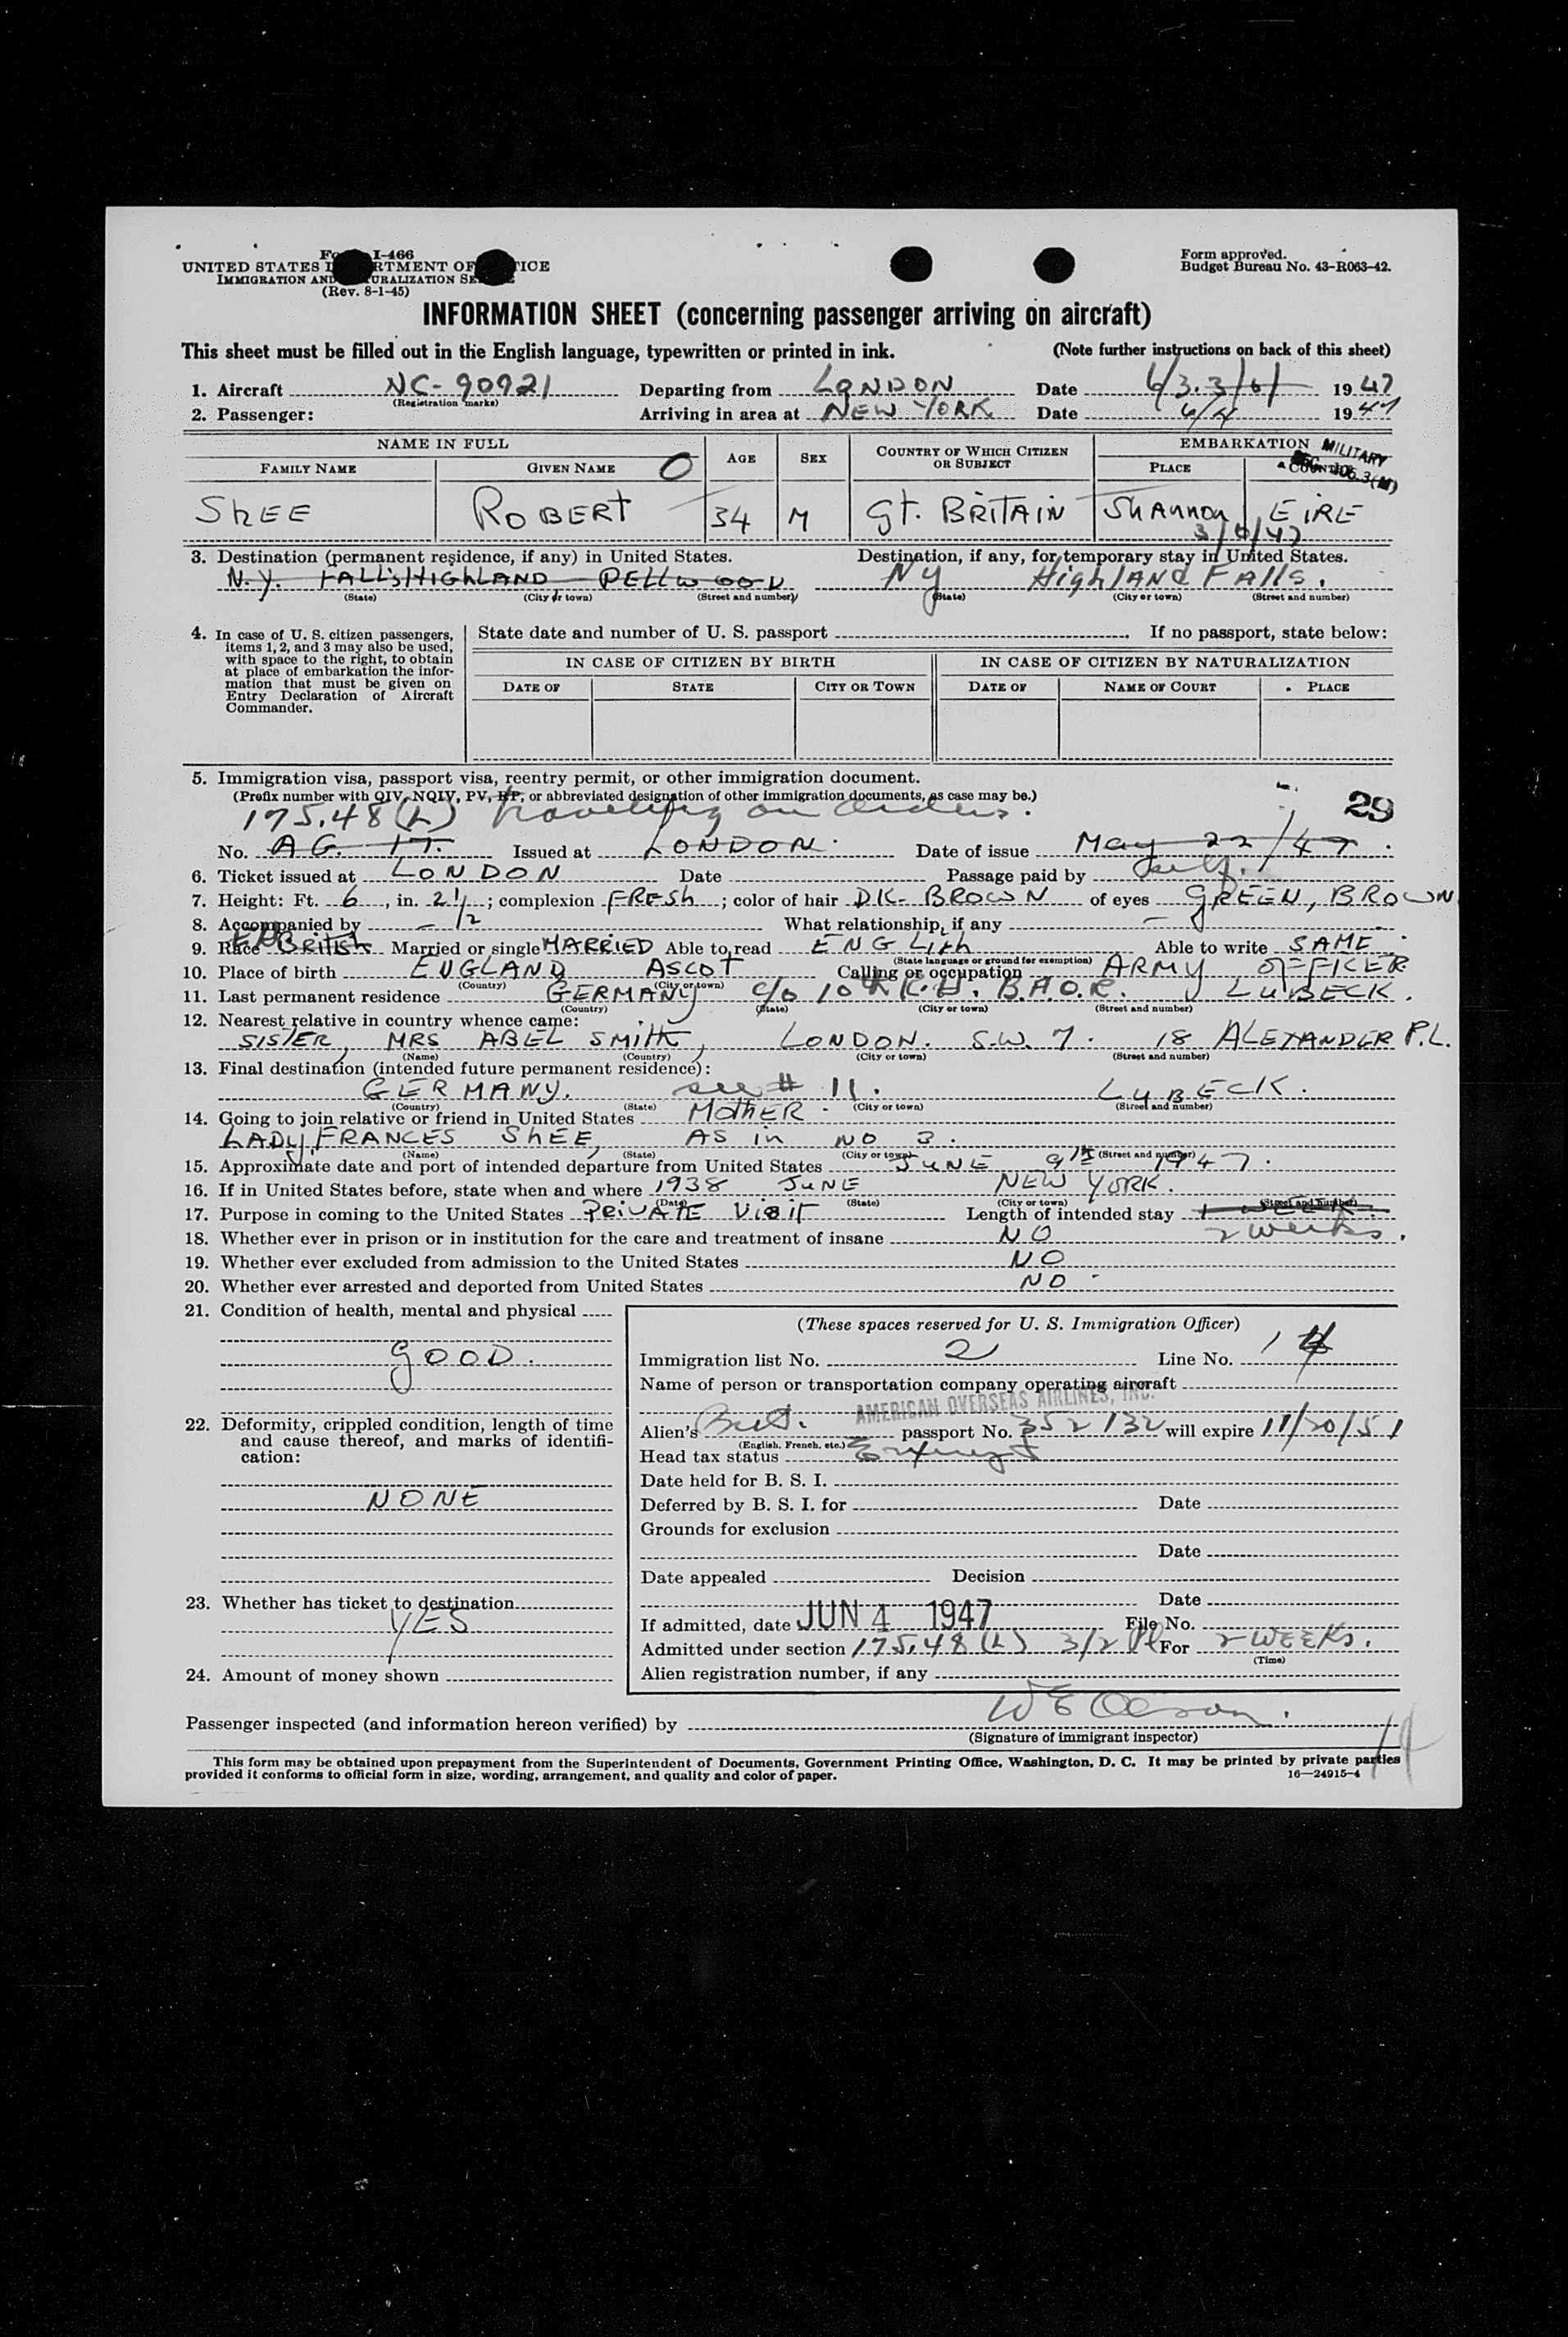 Form I-466
UNITED STATES DEPARTMENT OF JUSTICE
IMMIGRATION AND NATURALIZATION SERVICE
(Rev. 8-1-45)
Form approved.
Budget Bureau No. 43-R063-42.
INFORMATION SHEET (concerning passenger arriving on aircraft)
This sheet must be filled out in the English language, typewritten or printed in ink. (Note further instructions on back of this sheet)
1. Aircraft NC-90921 Departing from LONDON Date 6/3. 3/6/ 1947
(Registration marks)
2. Passenger: Arriving in area at NEW YORK Date 6/4 1947
NAME IN FULL AGE SEX COUNTRY OF WHICH CITIZEN OR SUBJECT EMBARKATION MILITARY
FAMILY NAME GIVEN NAME O PLACE COUNTRY
ShEE ROBERT 34 M Gt. BRITAIN ShANNON EIRE
3/6/47
3. Destination (permanent residence, if any) in United States. Destination, if any, for temporary stay in United States.
N.Y. FALLS HIGHLAND PELLWOOD NY HighLAND FAlls.
(State) (City or town) (Street and number) (State) (City or town) (Street and number)
4. In case of U. S. citizen passengers, items 1, 2, and 3 may also be used, with space to the right, to obtain at place of embarkation the information that must be given on Entry Declaration of Aircraft Commander.
State date and number of U. S. passport . If no passport, state below:
IN CASE OF CITIZEN BY BIRTH IN CASE OF CITIZEN BY NATURALIZATION
DATE OF STATE CITY OR TOWN DATE OF NAME OF COURT PLACE
5. Immigration visa, passport visa, reentry permit, or other immigration document.
(Prefix number with QIV, NQIV, PV, RP, or abbreviated designation of other immigration documents, as case may be.)
175.48(L) travelling on orders. 29
No. A G. 17. Issued at LONDON. Date of issue May 22/47.
6. Ticket issued at LONDON Date Passage paid by Self.
7. Height: Ft. 6, in. 2 1/2; complexion FRESh; color of hair DK. BROWN of eyes GREEN, BROWN
8. Accompanied by — What relationship, if any —
9. Race BRITISh Married or single MARRIED Able to read ENGLISh Able to write SAME
(State language or ground for exemption)
10. Place of birth ENGLAND ASCOT Calling or occupation ARMY OFFICER
(Country) (City or town)
11. Last permanent residence GERMANY c/o 10th R.H. B.A.O.R. LUBECK.
(Country) (State) (City or town) (Street and number)
12. Nearest relative in country whence came:
SISTER, MRS ABEL SMITH, LONDON. S.W. 7. 18 ALEXANDER P.L.
(Name) (Country) (City or town) (Street and number)
13. Final destination (intended future permanent residence):
GERMANY. see # 11. LUBECK.
(Country) (State) (City or town) (Street and number)
14. Going to join relative or friend in United States MOTHER.
LADY FRANCES ShEE, AS in NO 3.
(Name) (State) (City or town) (Street and number)
15. Approximate date and port of intended departure from United States JUNE 9th 1947.
16. If in United States before, state when and where 1938 JUNE NEW YORK.
(Date) (State) (City or town) (Street and number)
17. Purpose in coming to the United States PRIVATE VISIT Length of intended stay 1 WEEK.
2 weeks.
18. Whether ever in prison or in institution for the care and treatment of insane NO
19. Whether ever excluded from admission to the United States NO
20. Whether ever arrested and deported from United States NO
21. Condition of health, mental and physical
GOOD.
22. Deformity, crippled condition, length of time and cause thereof, and marks of identification:
NONE
23. Whether has ticket to destination
YES
24. Amount of money shown
(These spaces reserved for U. S. Immigration Officer)
Immigration list No. 2 Line No. 14
Name of person or transportation company operating aircraft
AMERICAN OVERSEAS AIRLINES, INC.
Alien's Brit. passport No. 352132 will expire 11/20/51
(English, French, etc.)
Head tax status Exempt
Date held for B. S. I.
Deferred by B. S. I. for Date
Grounds for exclusion
Date
Date appealed Decision
Date
If admitted, date JUN 4 1947 File No.
Admitted under section 175.48 (L) 3/2 For 2 WEEKS.
(Time)
Alien registration number, if any
Passenger inspected (and information hereon verified) by W E Olson.
(Signature of immigrant inspector)
This form may be obtained upon prepayment from the Superintendent of Documents, Government Printing Office, Washington, D. C. It may be printed by private parties
provided it conforms to official form in size, wording, arrangement, and quality and color of paper. 16—24915-4